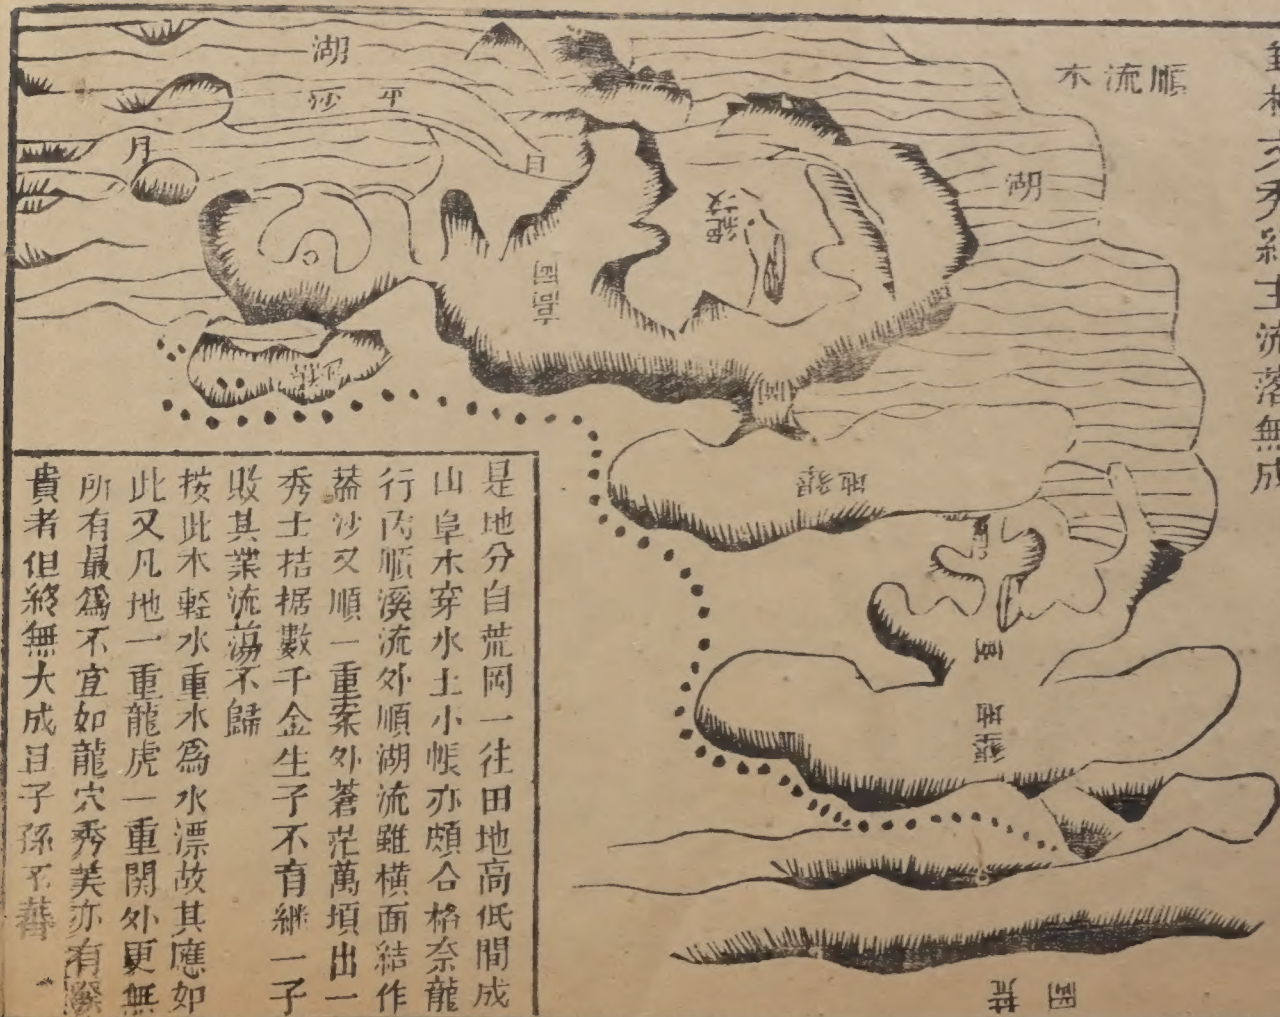 秀
流落無成
順流木
湖
湖
平沙
月
高岡
岡
墾地
墾地
荒岡
是地分自荒岡一往田地高低間成
山阜木穿水土小帳亦頗合格奈龍
行內順溪流外順湖流雖橫面結作
蓋沙又順一重案外蒼茫萬頃出一
秀士拮据數千金生子不育繼一子
敗其業流蕩不歸
按此木輕水重木爲水漂故其應如
此又凡地一重龍虎一重關外更無
所有最爲不宜如龍穴秀美亦有發
貴者但終無大成且子孫不蕃